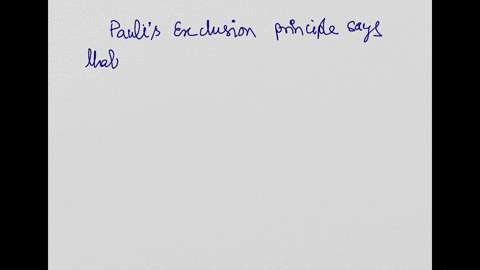 Pauli's Exclusion principle says
that